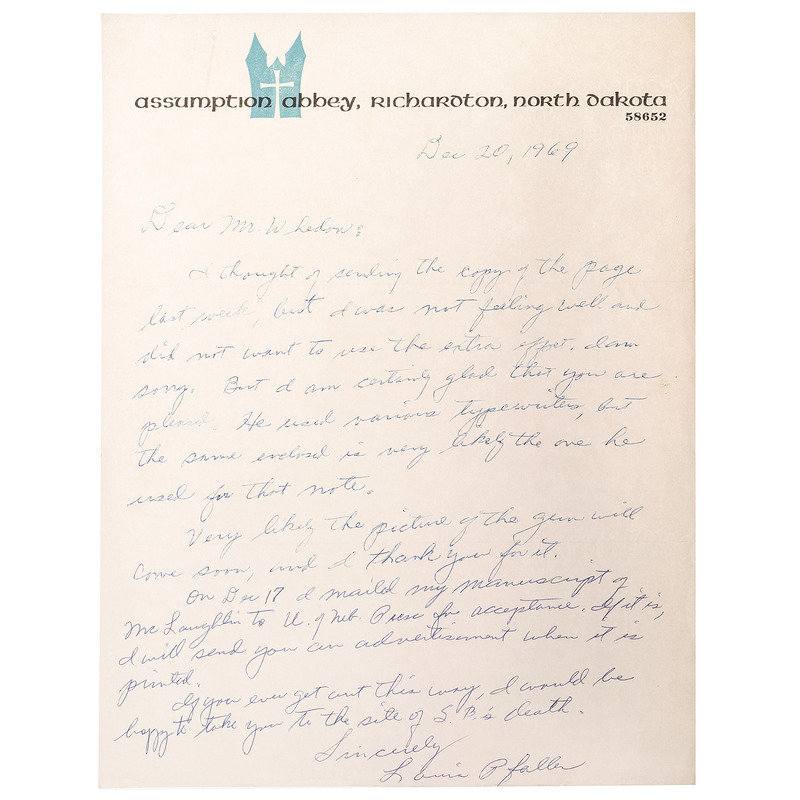 assumption abbey, Richardton, north dakota
58652
Dec 20, 1969
Dear Mr. Whedon:
I thought of sending the copy of the page
last week, but I was not feeling well and
did not want to use the extra effort. I am
sorry. But I am certainly glad that you are
pleased. He used various typewriters, but
the same enclosed is very likely the one he
used for that note.
Very likely the picture of the gun will
come soon, and I thank you for it.
On Dec 17 I maild my manuscript of
McLaughlin to U. of Neb. Press for acceptance. If it is,
I will send you an advertisement when it is
printed.
If you ever get out this way, I would be
happy to take you to the site of S.B.'s death.
Sincerely
Louis Pfaller